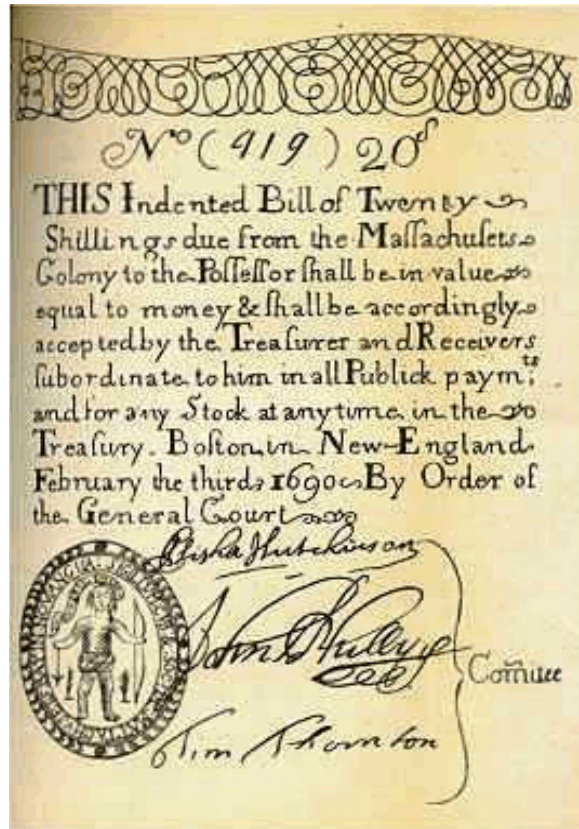 Nᵒ (919) 20ˢ
THIS Indented Bill of Twenty
Shillings due from the Maſſachuſets
Colony to the Poſſeſſor ſhall be in value
equal to money & ſhall be accordingly
accepted by the Treaſurer and Receivers
ſubordinate to him in all Publick paymᵗˢ
and for any Stock at any time in the
Treaſury. Boſton in New-England
February the third 1690 By Order of
the General Court
Eliſha Hutchinson
John
Comitee
Tim Thornton